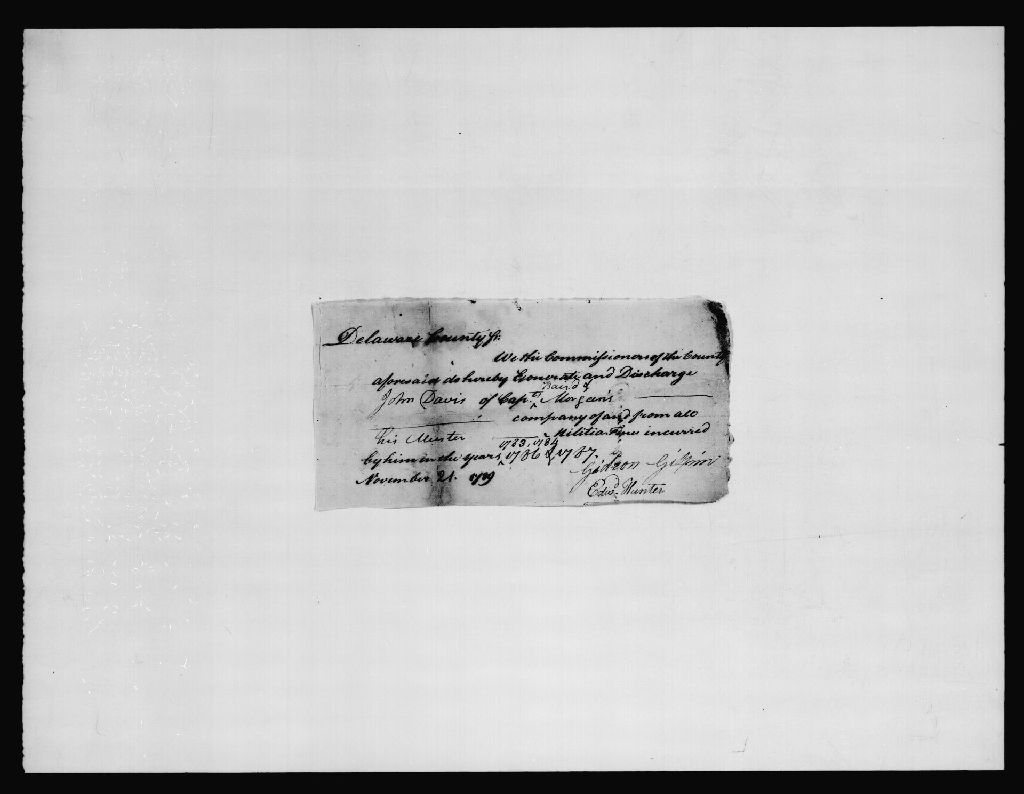 Delaware County ss.
We the Commissioners of the County
aforesaid do hereby Exonerate and Discharge
John Davis of Capt. David Morgan's
company of and from all
his Muster Militia Fines incurred
by him in the years 1783, 1784 1786 & 1787.
November 21. 1789 Gideon Gilpin
Edwd. Hunter